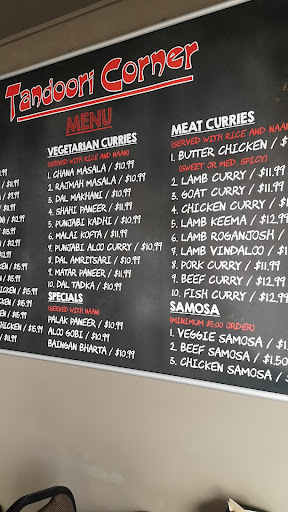 Tandoori Corner
MENU
VEGETARIAN CURRIES
(SERVED WITH RICE AND NAAN)
1. CHANA MASALA / $10.99
2. RAJMAH MASALA / $10.99
3. DAL MAKHANI / $10.99
4. SHAHI PANEER / $11.99
5. PUNJABI KADHI / $10.99
6. MALAI KOFTA / $11.99
7. PUNJABI ALOO CURRY / $10.99
8. DAL AMRITSARI / $10.99
9. MATAR PANEER / $11.99
10. DAL TADKA / $10.99
SPECIALS
(SERVED WITH NAAN)
PALAK PANEER / $11.99
ALOO GOBI / $10.99
BAINGAN BHARTA / $10.99
MEAT CURRIES
(SERVED WITH RICE AND NAAN)
1. BUTTER CHICKEN / $
(SWEET OR MED. SPICY)
2. LAMB CURRY / $11.99
3. GOAT CURRY / $11.99
4. CHICKEN CURRY / $1
5. LAMB KEEMA / $12.99
6. LAMB ROGANJOSH /
7. LAMB VINDALOO / $1
8. PORK CURRY / $11.99
9. BEEF CURRY / $12.99
10. FISH CURRY / $12.99
SAMOSA
(MINIMUM $5.00 ORDER)
1. VEGGIE SAMOSA / $1
2. BEEF SAMOSA / $1.50
3. CHICKEN SAMOSA / $